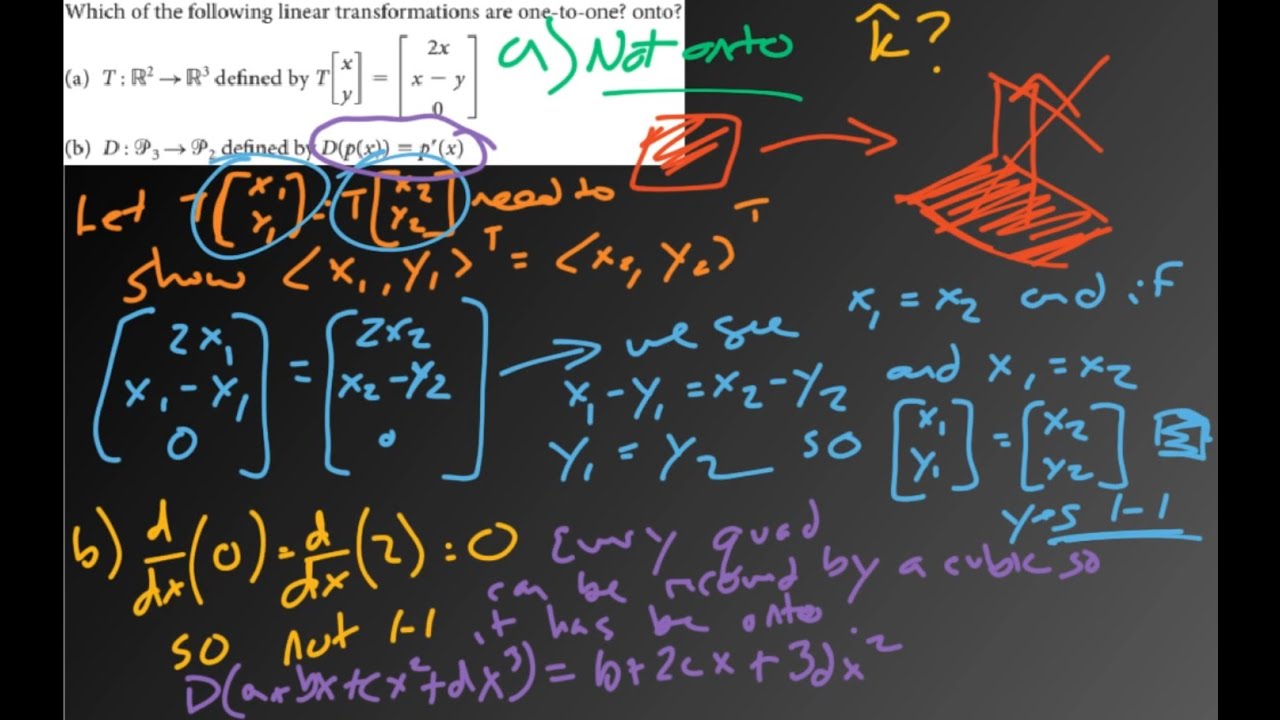 Which of the following linear transformations are one-to-one? onto?
(a) T : ℝ² → ℝ³ defined by T [x y] = [2x x − y 0]
(b) D : 𝒫₃ → 𝒫₂ defined by D(p(x)) = p′(x)
a) Not onto
k̂ ?
Let T[x₁ y₁] = T[x₂ y₂] need to
show <x₁, y₁>ᵀ = <x₂, y₂>ᵀ
T
[2x₁ x₁ − y₁ 0] = [2x₂ x₂ − y₂ 0] → we see x₁ = x₂ and if
x₁ − y₁ = x₂ − y₂ and x₁ = x₂
y₁ = y₂ so [x₁ y₁] = [x₂ y₂]
yes 1-1
b) d/dx (0) = d/dx (2) = 0
so not 1-1
Every quad
can be by a cubic so
it has be onto
D(a+bx+cx²+dx³) = b+2cx+3dx²